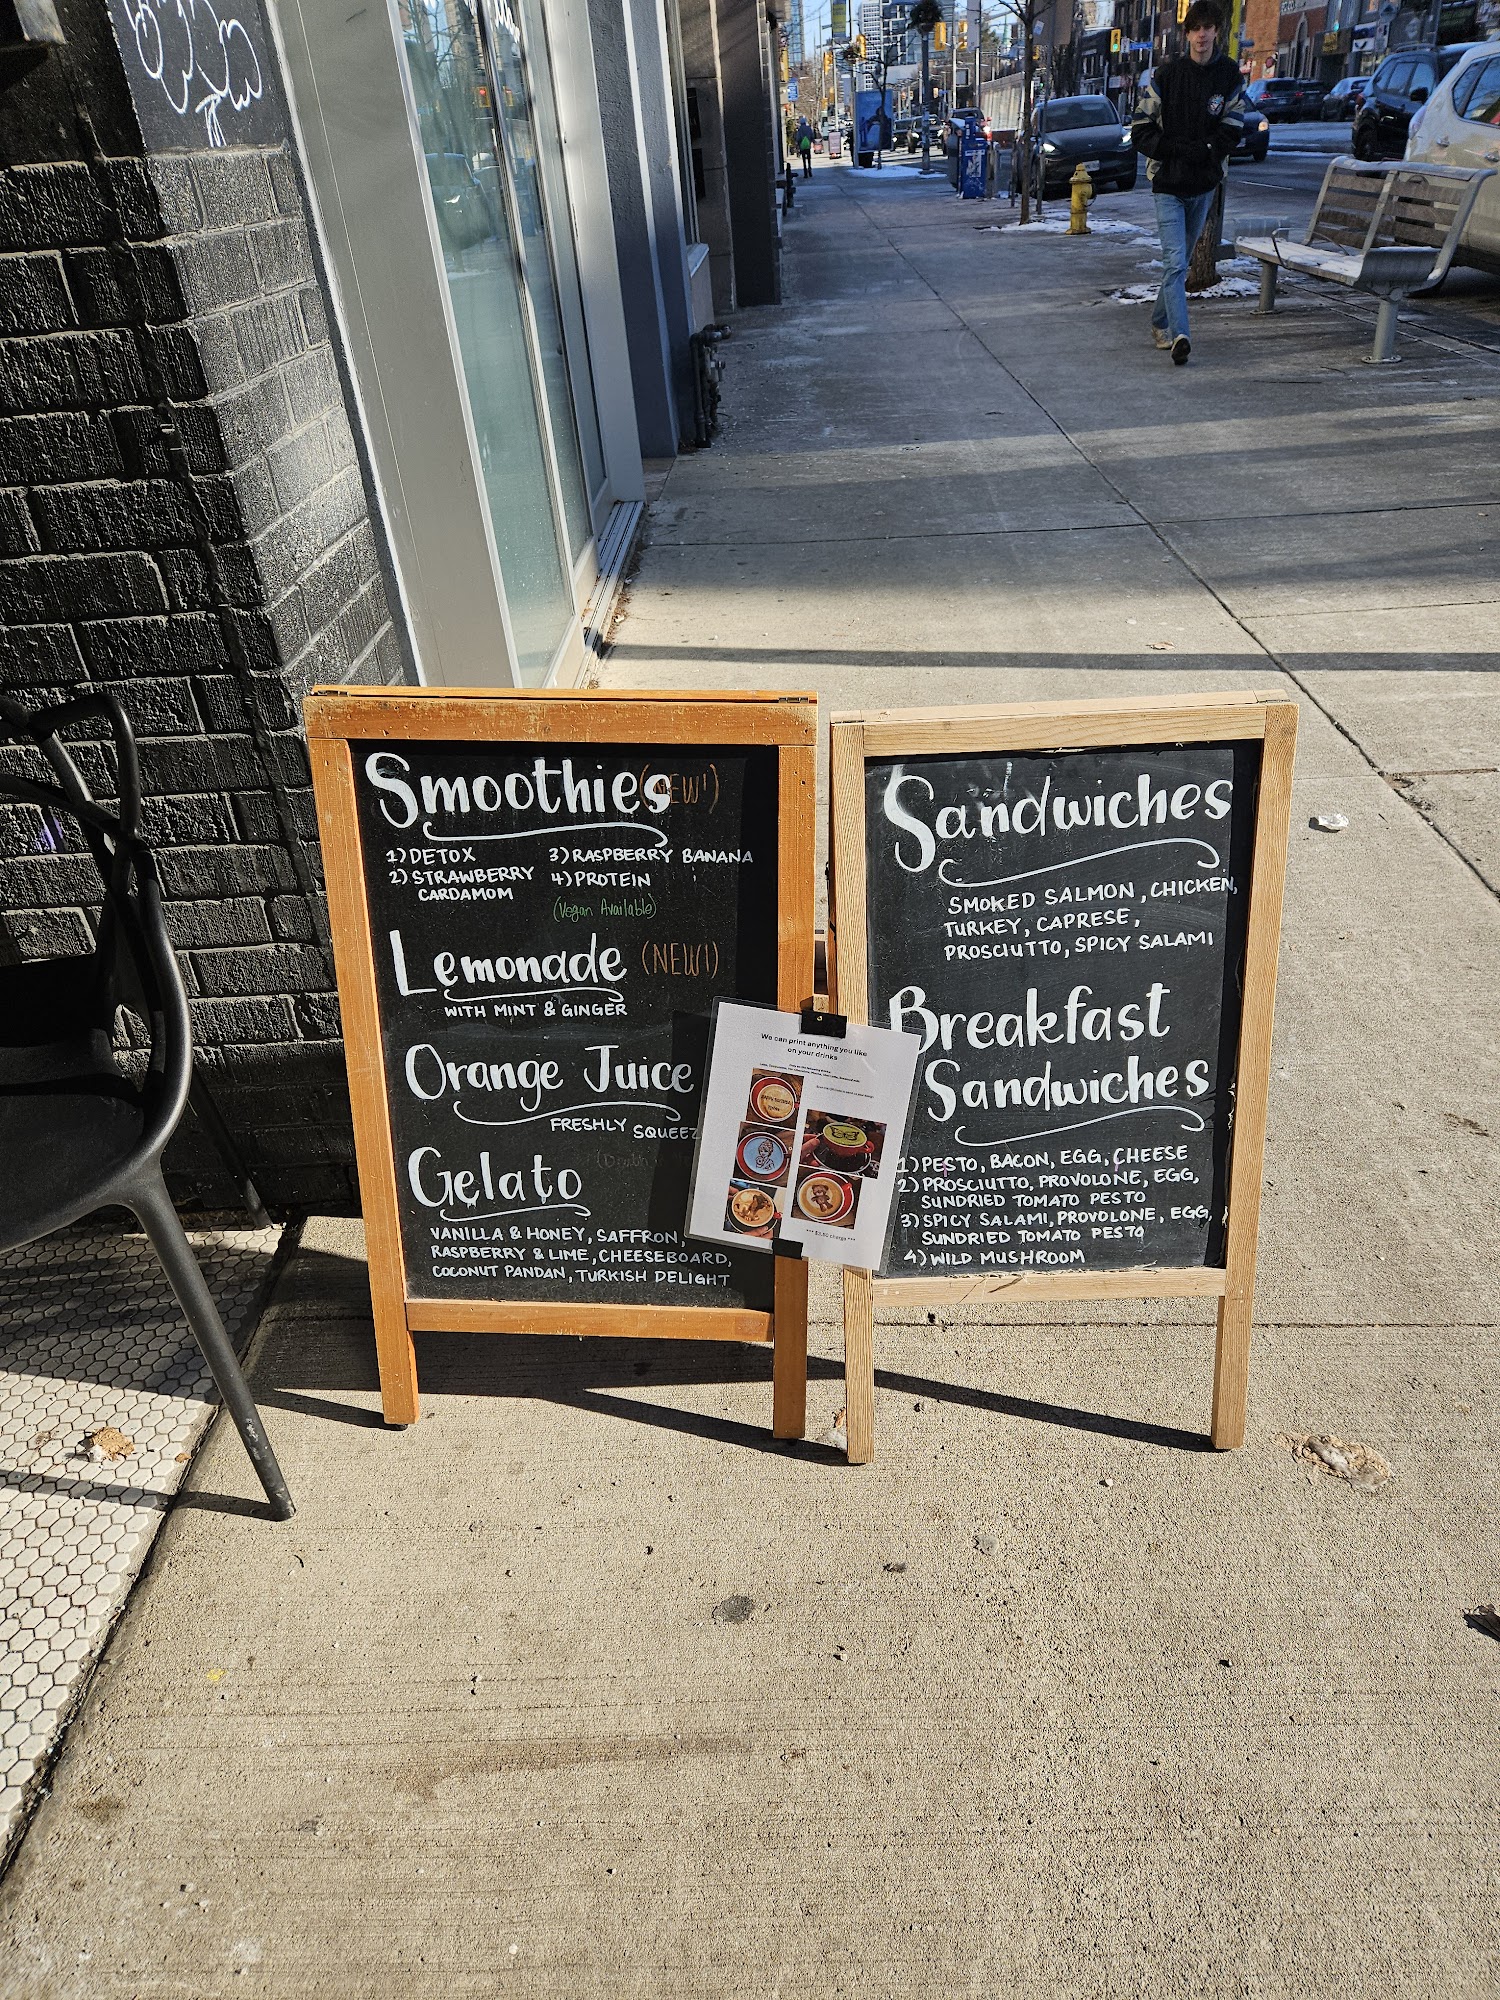 Smoothies (NEW!)
1) DETOX
2) STRAWBERRY
CARDAMOM
3) RASPBERRY BANANA
4) PROTEIN
(Vegan Available)
Lemonade (NEW!)
WITH MINT & GINGER
Orange Juice
FRESHLY SQUEEZ
Gelato
VANILLA & HONEY, SAFFRON,
RASPBERRY & LIME, CHEESEBOARD,
COCONUT PANDAN, TURKISH DELIGHT
We can print anything you like
on your drinks
*** $2.50 charge ***
Sandwiches
SMOKED SALMON, CHICKEN,
TURKEY, CAPRESE,
PROSCIUTTO, SPICY SALAMI
Breakfast
Sandwiches
1) PESTO, BACON, EGG, CHEESE
2) PROSCIUTTO, PROVOLONE, EGG,
SUNDRIED TOMATO PESTO
3) SPICY SALAMI, PROVOLONE, EGG,
SUNDRIED TOMATO PESTO
4) WILD MUSHROOM